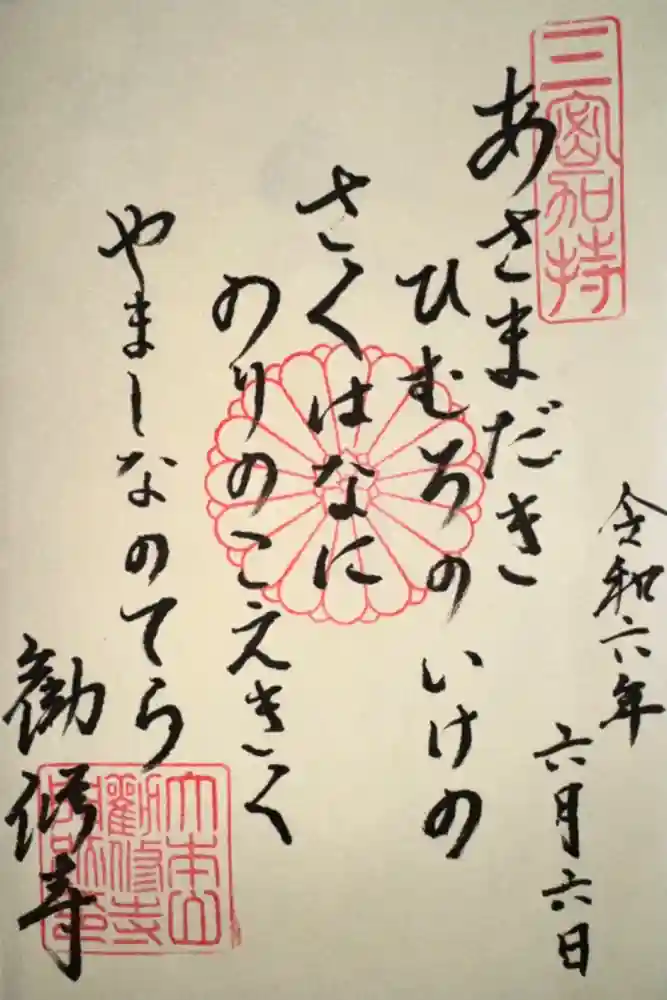 三密加持
令和六年
六月六日
あさまだき
ひむろのいけの
さくはなに
のりのこえきく
やましなのてら
勧修寺
大本山
勸修寺